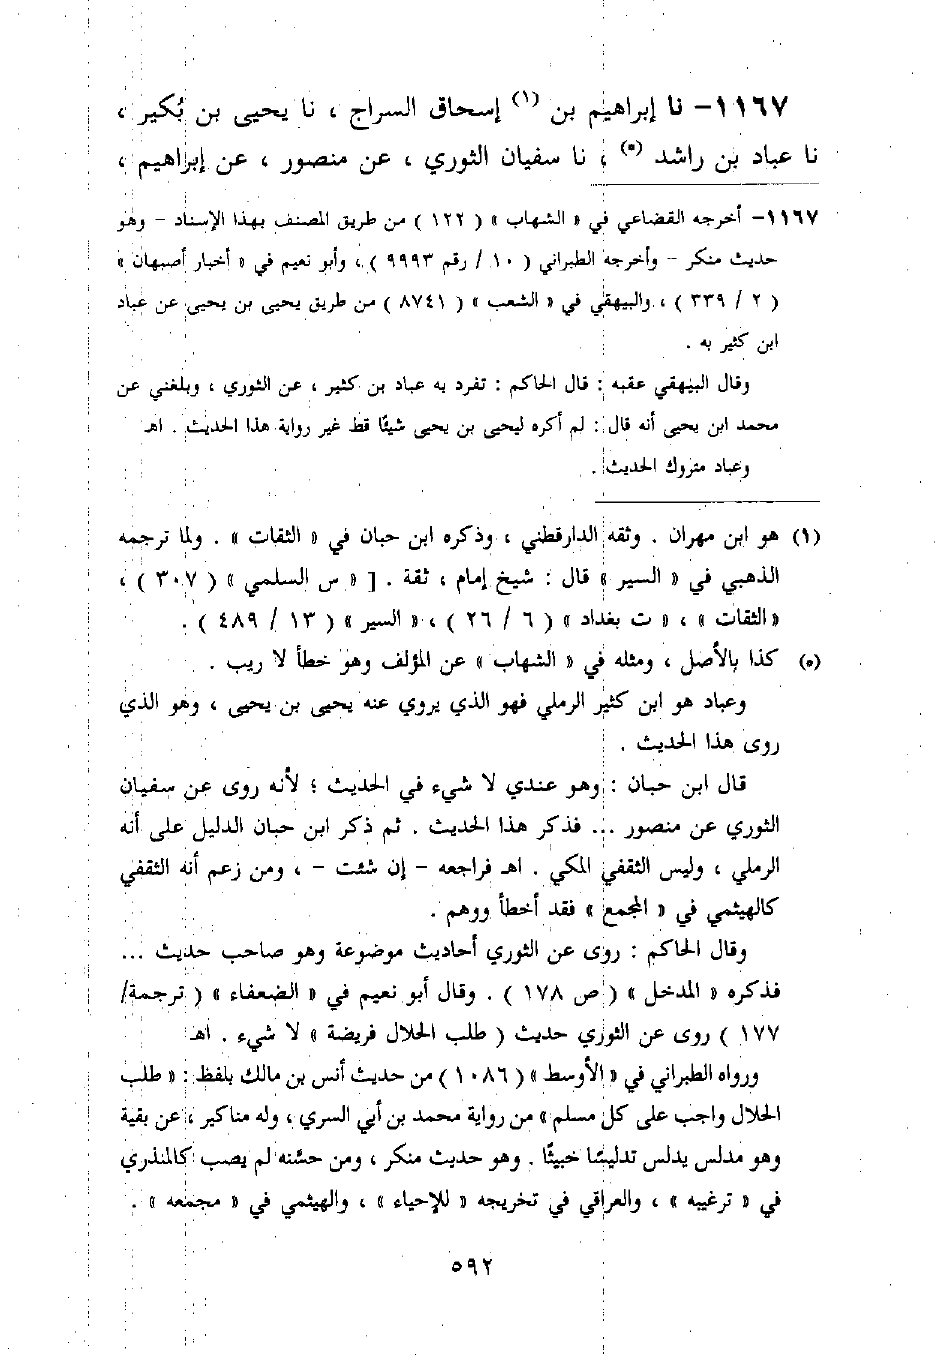 ١١٦٧- نا إبراهيم بن (١) إسحاق السراج ، نا يحيى بن بُكير ،
نا عباد بن راشد (*) ، نا سفيان الثوري ، عن منصور ، عن إبراهيم ،
١١٦٧- أخرجه القضاعي في « الشهاب » ( ١٢٢ ) من طريق المصنف بهذا الإسناد - وهو
حديث منكر - وأخرجه الطبراني ( ١٠ / رقم ٩٩٩٣ ) ، وأبو نعيم في « أخبار أصبهان »
( ٢ / ٣٣٩ ) ، والبيهقي في « الشعب » ( ٨٧٤١ ) من طريق يحيى بن يحيى عن عباد
ابن كثير به .
وقال البيهقي عقبه : قال الحاكم : تفرد به عباد بن كثير ، عن الثوري ، وبلغني عن
محمد ابن يحيى أنه قال : لم أكره ليحيى بن يحيى شيئًا قط غير رواية هذا الحديث . اهـ
وعباد متروك الحديث .
(١) هو ابن مهران . وثقه الدارقطني ، وذكره ابن حبان في « الثقات » . ولما ترجمه
الذهبي في « السير » قال : شيخ إمام ، ثقة . [ « س السلمي » ( ٣٠٧ ) ،
« الثقات » ، « ت بغداد » ( ٦ / ٢٦ ) ، « السير » ( ١٣ / ٤٨٩ ) .
(*) كذا بالأصل ، ومثله في « الشهاب » عن المؤلف وهو خطأ لا ريب .
وعباد هو ابن كثير الرملي فهو الذي يروي عنه يحيى بن يحيى ، وهو الذي
روى هذا الحديث .
قال ابن حبان : وهو عندي لا شيء في الحديث ؛ لأنه روى عن سفيان
الثوري عن منصور ... فذكر هذا الحديث . ثم ذكر ابن حبان الدليل على أنه
الرملي ، وليس الثقفي المكي . اهـ فراجعه - إن شئت - ، ومن زعم أنه الثقفي
كالهيثمي في « المجمع » فقد أخطأ ووهم .
وقال الحاكم : روى عن الثوري أحاديث موضوعة وهو صاحب حديث ...
فذكره « المدخل » ( ص ١٧٨ ) . وقال أبو نعيم في « الضعفاء » ( ترجمة/
١٧٧ ) روى عن الثوري حديث ( طلب الحلال فريضة » لا شيء . اهـ
ورواه الطبراني في « الأوسط » ( ١٠٨٦ ) من حديث أنس بن مالك بلفظ : « طلب
الحلال واجب على كل مسلم » من رواية محمد بن أبي السري ، وله مناكير ، عن بقية
وهو مدلس يدلس تدليسًا خبيثًا . وهو حديث منكر ، ومن حسَّنه لم يصب كالمنذري
في « ترغيبه » ، والعراقي في تخريجه « للإحياء » ، والهيثمي في « مجمعه » .
٥٩٢